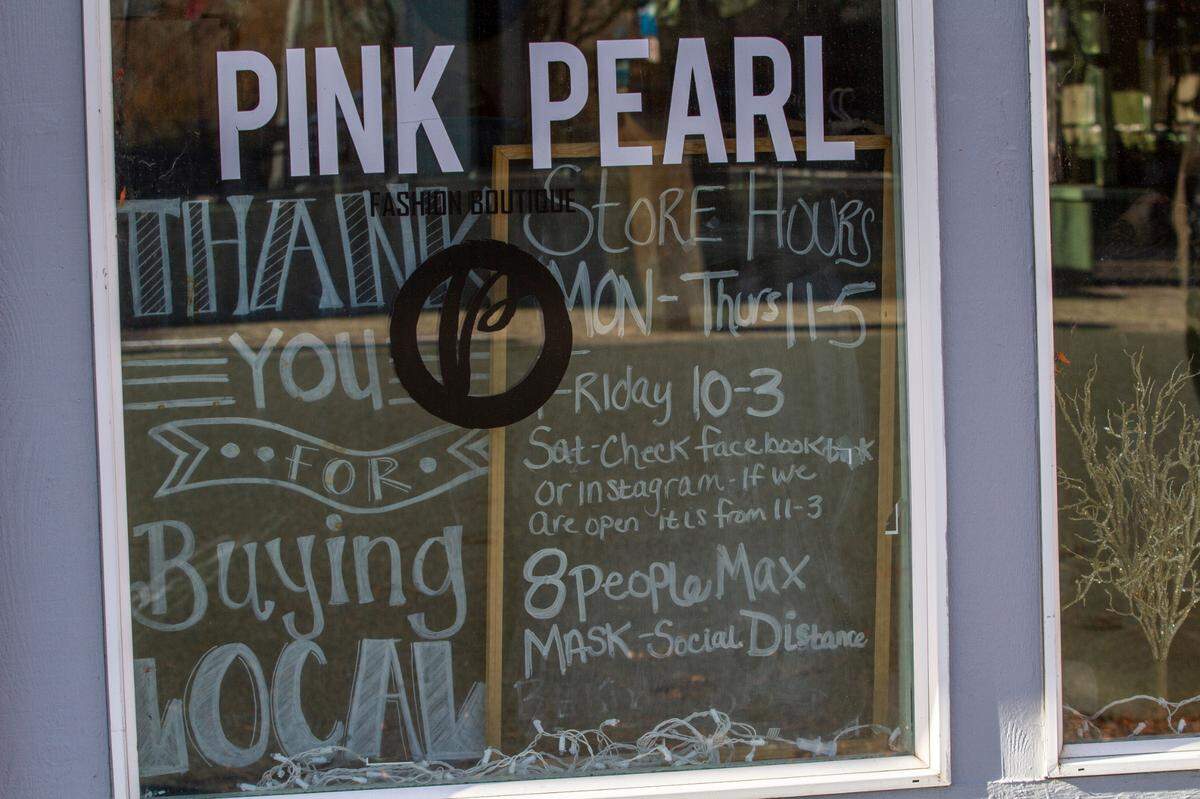 PINK PEARL
FASHION BOUTIQUE
THANK
YOU
FOR
Buying
LOCAL
STORE HOURS
MON-Thurs 11-5
FRIday 10-3
Sat-Check facebook
or instagram-If we
are open it is from 11-3
8 people Max
MASK-Social Distance